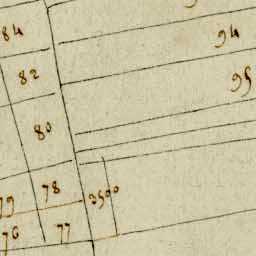 84
94
82
95
80
78
79
77
76